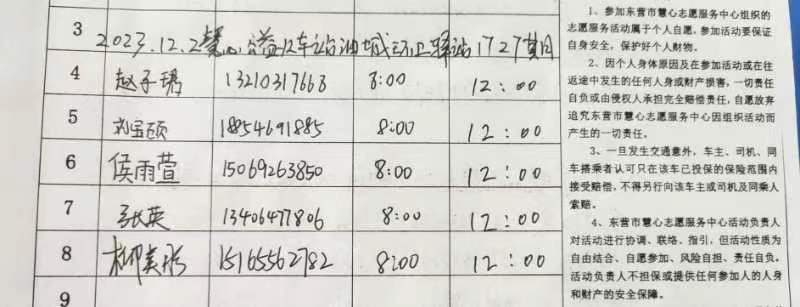 3
2023.12.2慧心公益-长车站油城环卫驿站1727黄月
4 赵子琇 13210317668 8:00 12:00
5 刘宝硕 18854691885 8:00 12:00
6 侯雨萱 15069263850 8:00 12:00
7 张英 13406477806 8:00 12:00
8 柳美彤 15165562782 8:00 12:00
9
1、参加东营市慧心志愿服务中心组织的
志愿服务活动属于个人自愿,参加活动要保证
自身安全,保护好个人财物。
2、因个人身体原因及在参加活动或在往
返途中发生的任何人身或财产损害,一切责任
自负或由侵权人承担完全赔偿责任,自愿放弃
追究东营市慧心志愿服务中心因组织活动而
产生的一切责任。
3、一旦发生交通意外,车主、司机、同
车搭乘者认可只在该车已投保的保险范围内
接受赔偿,不得另行向该车主或司机及同乘人
索赔。
4、东营市慧心志愿服务中心活动负责人
对活动进行协调、联络、指引,但活动性质为
自由结合、自愿参加、风险自担、责任自负。
活动负责人不担保或提供任何参加人的人身
和财产的安全保障。